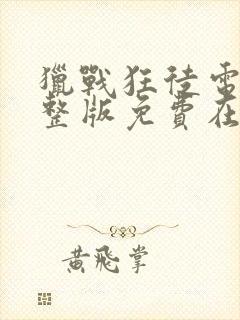 獵戰狂徒電
整版免費在
黃飛掌